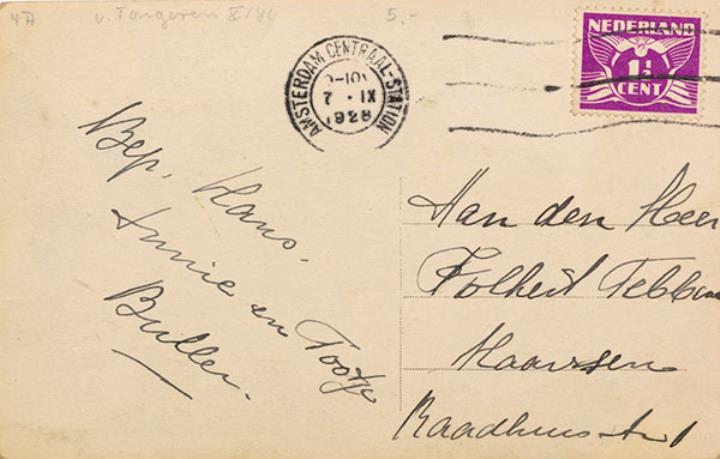 4A v. Tongeren X/84 5.-
AMSTERDAM CENTRAAL-STATION
7 · IX
1928
NEDERLAND
1½
CENT
Bep, Hans.
Annie en Tootje
Buller.
Aan den Heer
Folkert
Maarssen